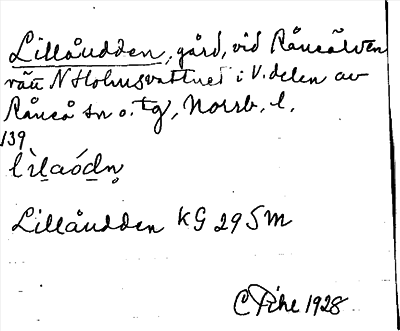 Lillåudden, gård, vid Råneälven
rätt N Holmsvattnet i V. delen av
Råneå sn o. tg, Norrb. l.
139
Lillåudden KG 29 SM
C Pihl 1928